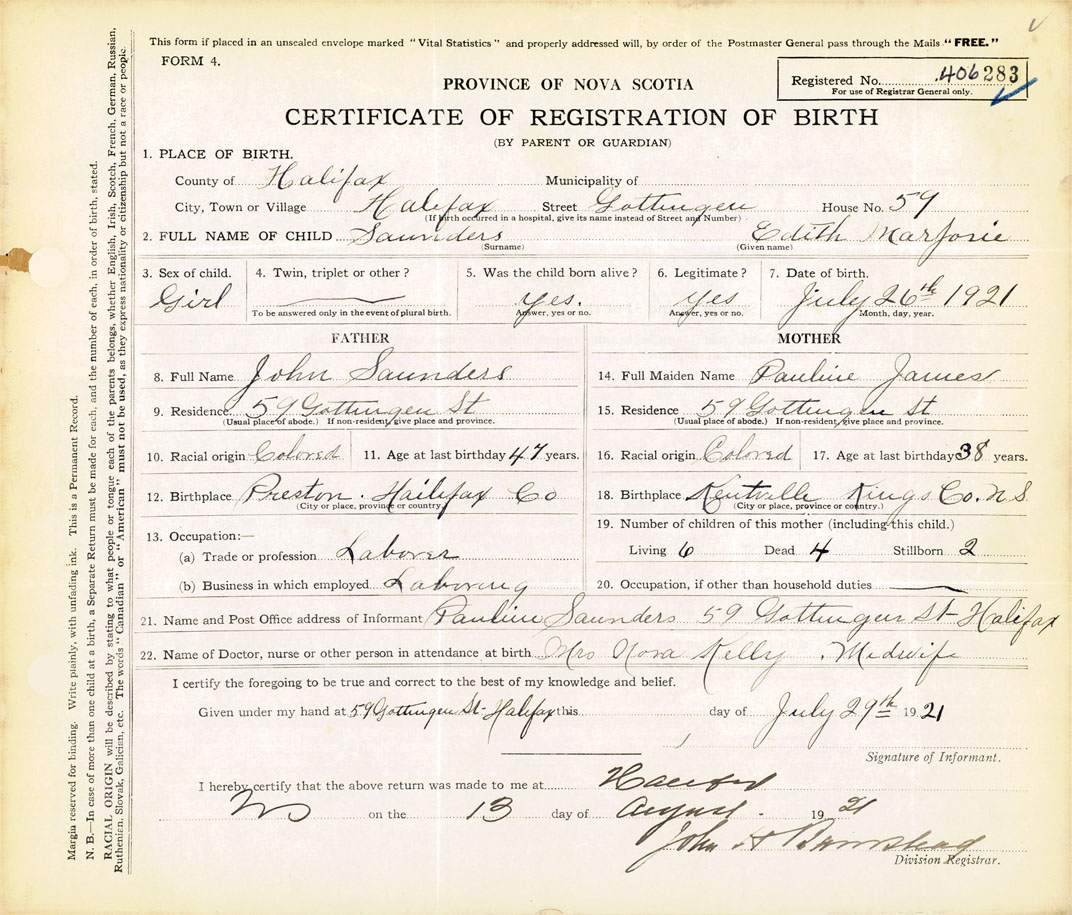 This form if placed in an unsealed envelope marked "Vital Statistics" and properly addressed will, by order of the Postmaster General pass through the Mails "FREE."
FORM 4.
Registered No. 406283
For use of Registrar General only.
PROVINCE OF NOVA SCOTIA
CERTIFICATE OF REGISTRATION OF BIRTH
(BY PARENT OR GUARDIAN)
1. PLACE OF BIRTH.
County of Halifax Municipality of
City, Town or Village Halifax Street Gottingen House No. 59
(If birth occurred in a hospital, give its name instead of Street and Number)
2. FULL NAME OF CHILD Saunders Edith Marjorie
(Surname) (Given name)
3. Sex of child. 4. Twin, triplet or other? 5. Was the child born alive? 6. Legitimate? 7. Date of birth.
Girl yes. yes July 26th 1921
To be answered only in the event of plural birth. Answer, yes or no. Answer, yes or no. Month, day, year.
FATHER MOTHER
8. Full Name John Saunders 14. Full Maiden Name Pauline James
9. Residence 59 Gottingen St 15. Residence 59 Gottingen St
(Usual place of abode.) If non-resident, give place and province. (Usual place of abode.) If non-resident, give place and province.
10. Racial origin Colored 11. Age at last birthday 47 years. 16. Racial origin Colored 17. Age at last birthday 38 years.
12. Birthplace Preston. Hailifax Co 18. Birthplace Kentville Kings Co. N S
(City or place, province or country) (City or place, province or country.)
13. Occupation:— 19. Number of children of this mother (including this child.)
(a) Trade or profession Laborer Living 6 Dead 4 Stillborn 2
(b) Business in which employed Laboring 20. Occupation, if other than household duties
21. Name and Post Office address of Informant Pauline Saunders 59 Gottingen St Halifax
22. Name of Doctor, nurse or other person in attendance at birth Mrs Nora Kelly. Midwife
I certify the foregoing to be true and correct to the best of my knowledge and belief.
Given under my hand at 59 Gottingen St-Halifax this day of July 29th 1921
Signature of Informant.
I hereby certify that the above return was made to me at Halifax
on the 13 day of August. 1921
John A Barnstead
Division Registrar.
Margin reserved for binding. Write plainly, with unfading ink. This is a Permanent Record.
N. B.—In case of more than one child at a birth, a Separate Return must be made for each, and the number of each, in order of birth, stated.
RACIAL ORIGIN will be described by stating to what people or tongue each of the parents belongs, whether English, Irish, Scotch, French, German, Russian,
Ruthenian, Slovak, Galician, etc. The words "Canadian" or "American" must not be used, as they express nationality or citizenship but not a race or people.